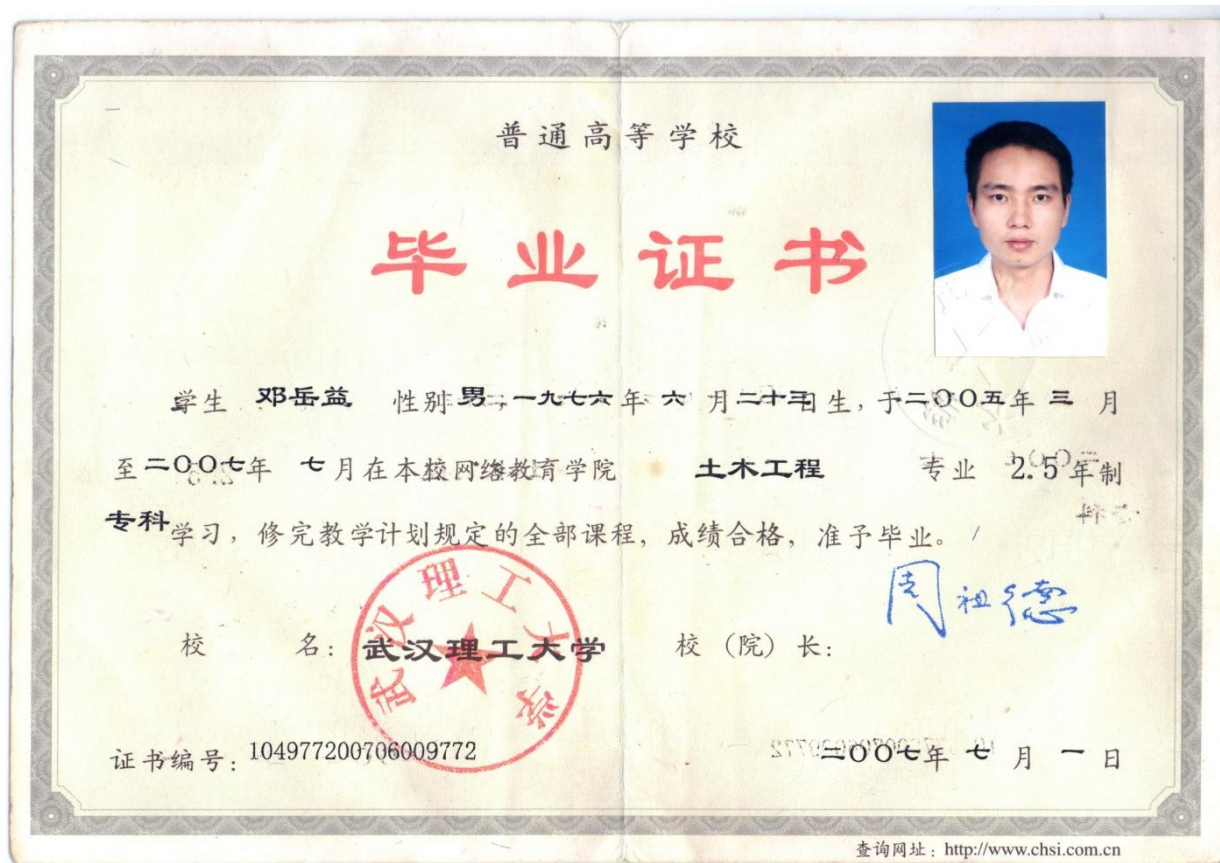 普通高等学校
毕业证书
学生 邓岳益 性别 男,一九七六年 六 月二十三日生,于二〇〇五年 三 月
至二〇〇七年 七月在本校网络教育学院 土木工程 专业 2.5年制
专科学习,修完教学计划规定的全部课程,成绩合格,准予毕业。
武汉理工大学
校 名:武汉理工大学 校(院)长:周祖德
证书编号:104977200706009772 二〇〇七年 七 月 一 日
查询网址:http://www.chsi.com.cn